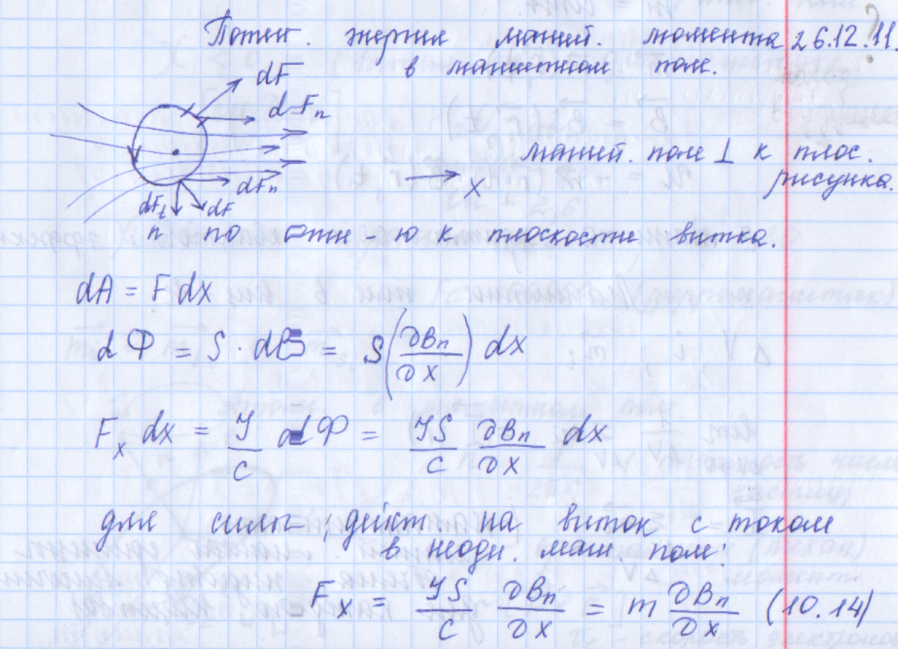 Потен. энергия магнит. момента 26.12.11.
в магнитном поле.
dF
dFn
магнит. поле ⊥ к плос.
рисунка.
x
dFn
dF₁ dF
n по отн-ю к плоскости витка.
dA = F dx
dФ = S · dB = S(∂Bn/∂x) dx
Fx dx = J/c dФ = JS/c ∂Bn/∂x dx
для силы, дейст. на виток с током
в неодн. магн. поле:
Fx = JS/c ∂Bn/∂x = m ∂Bn/∂x (10.14)